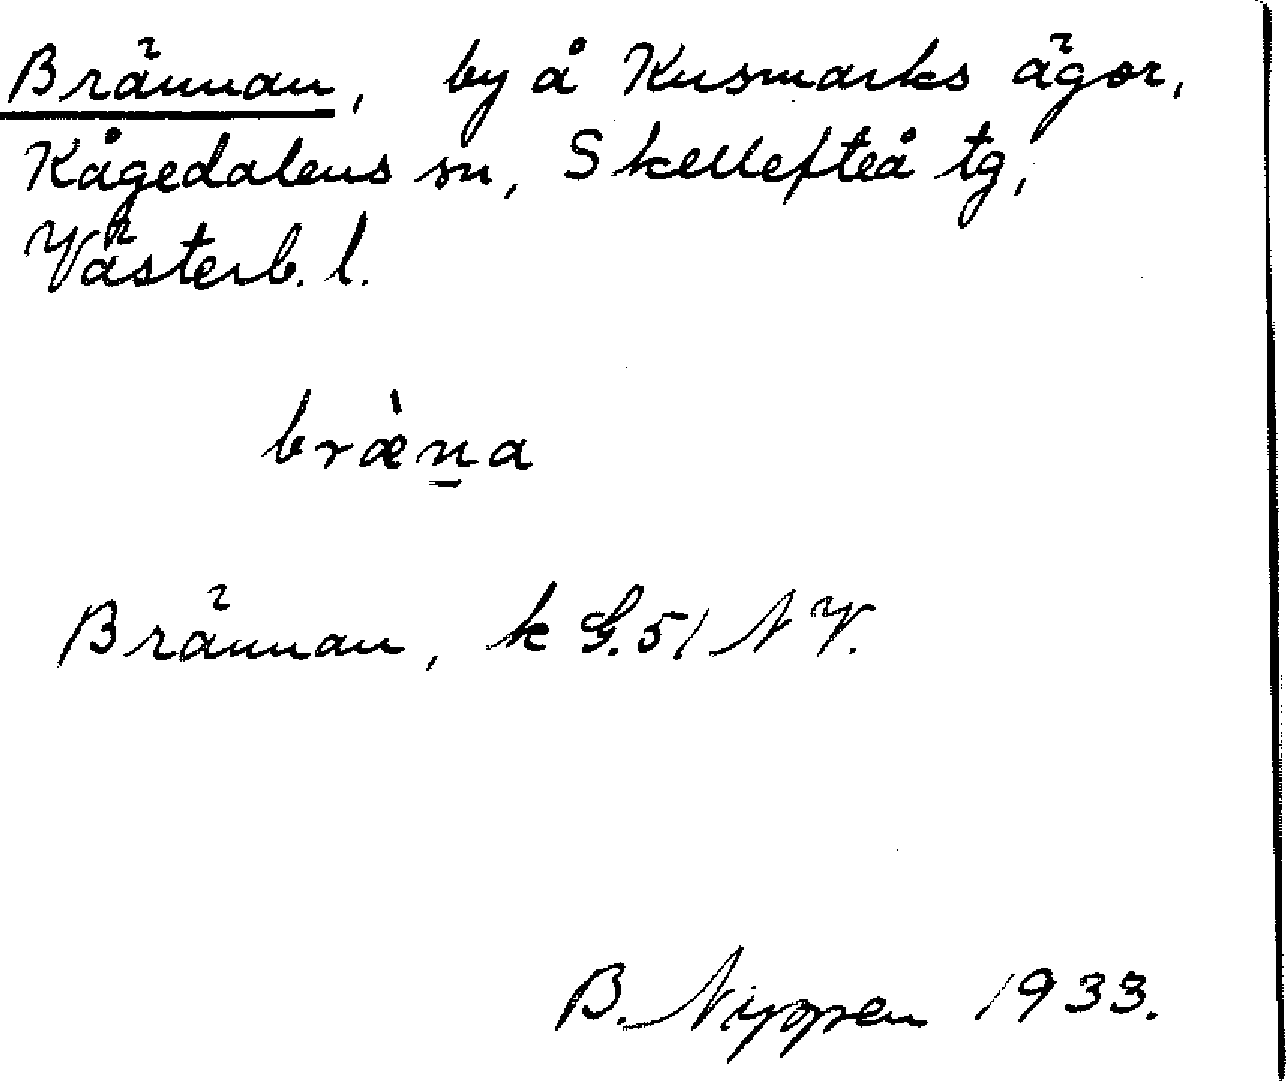 Brännan, by å Kusmarks ägor,
Kågedalens sn, Skellefteå tg,
Västerb. l.
bræ̀n̲a
Brännan, k G.51 N V.
B. Nyppen 1933.